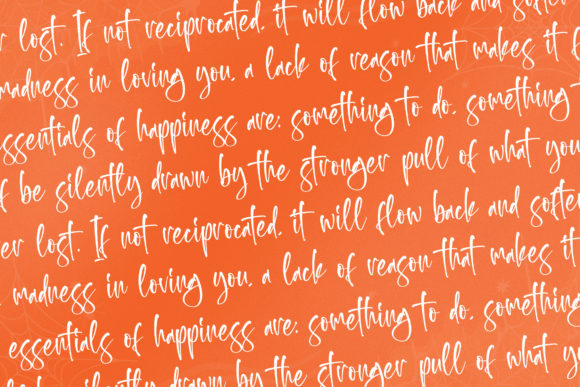 er lost. If not reciprocated, it will flow back and soften
madness in loving you, a lack of reason that makes it f
essentials of happiness are: something to do, something
f be silently drawn by the stronger pull of what you
er lost. If not reciprocated, it will flow back and soften
madness in loving you, a lack of reason that makes it
essentials of happiness are: something to do, something
be silently drawn by the stronger pull of what yo